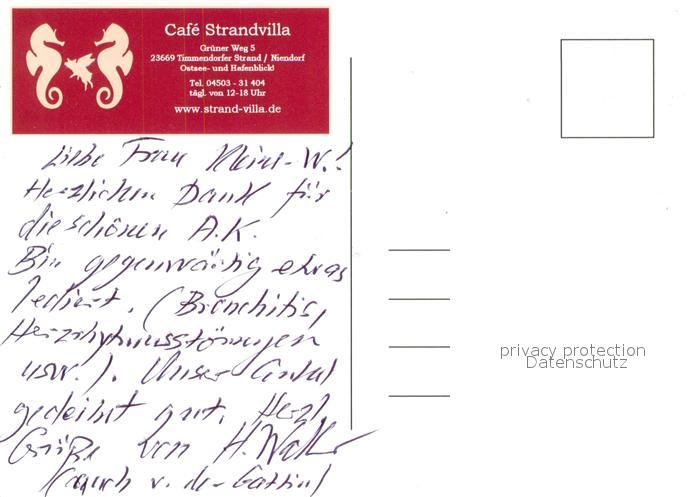 Café Strandvilla
Grüner Weg 5
23669 Timmendorfer Strand / Niendorf
Ostsee- und Hafenblick!
Tel. 04503 - 31 404
tägl. von 12-18 Uhr
www.strand-villa.de
Liebe Frau W.!
Herzlichen Dank für
die schönen A.K.
Bin gegenwärtig etwas
lediert. (Bronchitis,
Herzrhytmusstörungen
usw.). Unser Enkel
gedeiht gut. Herzl
Grüße von H.
(auch v. der Gattin)
privacy protection
Datenschutz